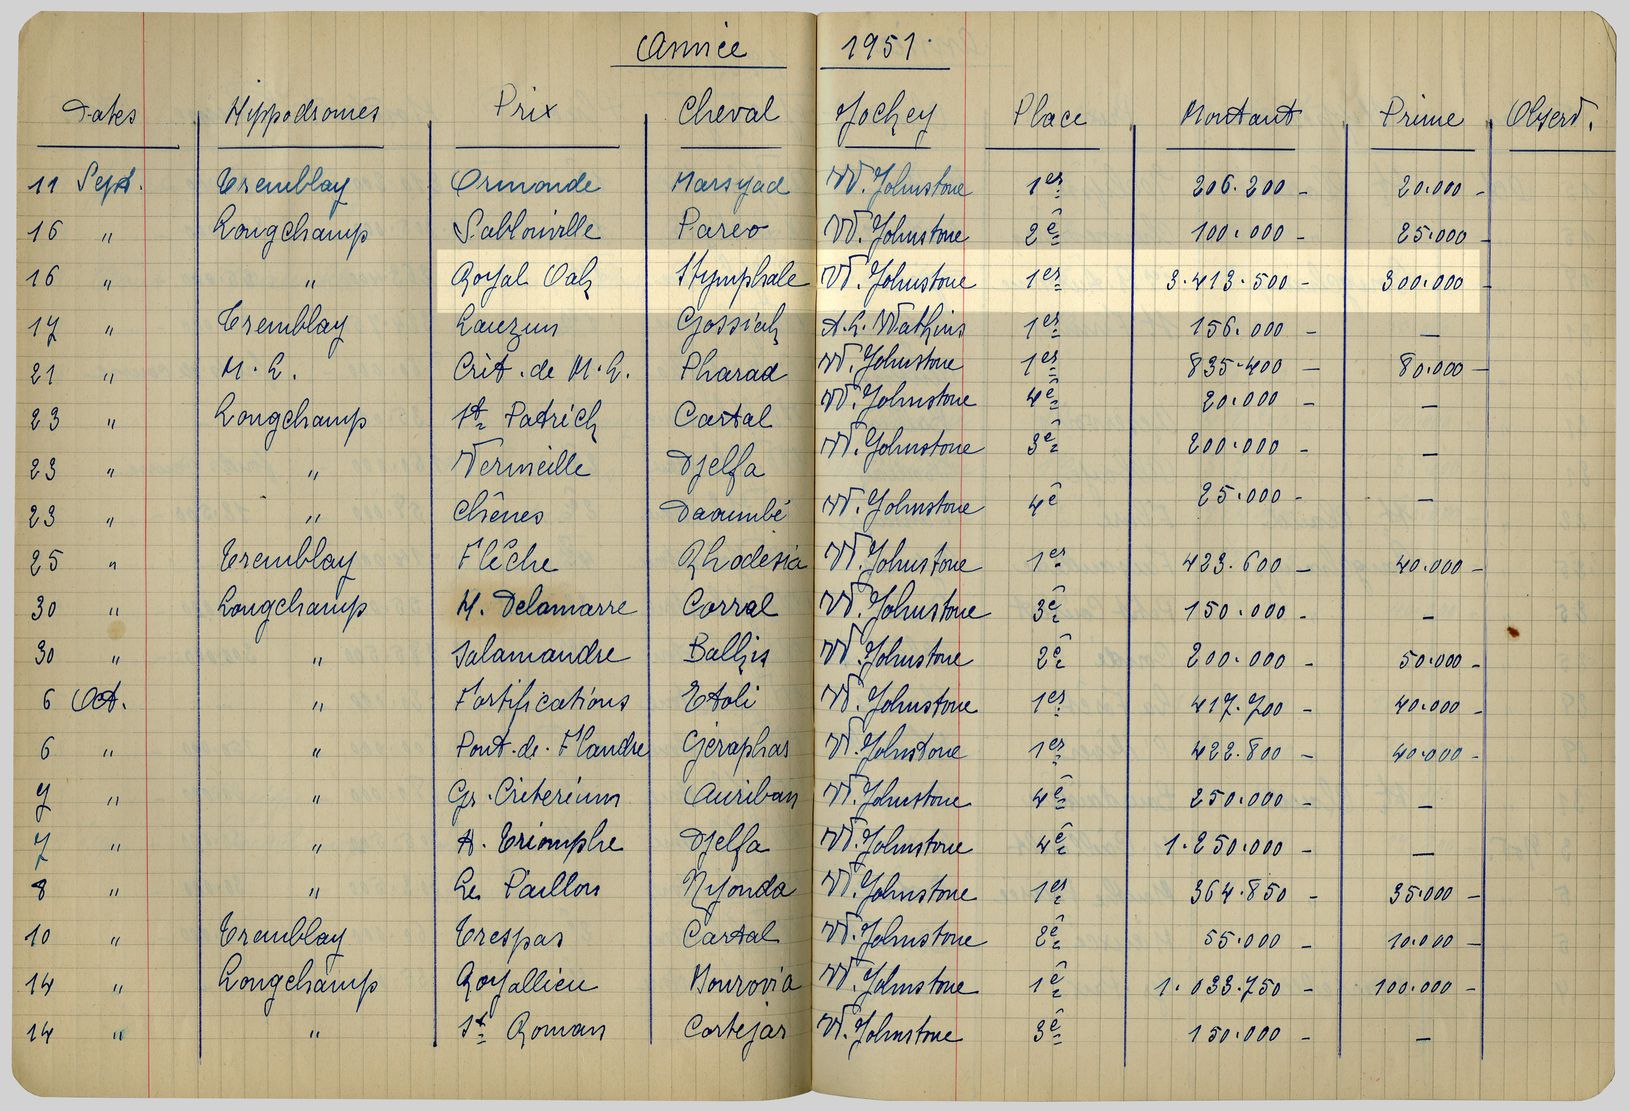 Année 1951.
Dates Hippodromes Prix Cheval Jockey Place Montant Prime Observ.
11 Sept. Tremblay Ormonde Marsyad W. Johnstone 1er 206.200 - 20.000 -
16 " Longchamp Sablonville Pareo W. Johnstone 2e 100.000 - 25.000 -
16 " " Royal Oak Stymphale W. Johnstone 1er 3.413.500 - 300.000 -
17 " Tremblay Lauzun Gossiak A.L. Watkins 1er 156.000 - -
21 " M.L. Crit. de M.L. Pharad W. Johnstone 1er 835.400 - 80.000 -
23 " Longchamp St Patrick Castal W. Johnstone 4e 20.000 - -
23 " " Vermeille Djelfa W. Johnstone 3e 200.000 - -
23 " " Chênes Daoumbé W. Johnstone 4e 25.000 - -
25 " Tremblay Flêche Rhodésia W. Johnstone 1er 423.600 - 40.000 -
30 " Longchamp H. Delamarre Corral W. Johnstone 3e 150.000 - -
30 " " Salamandre Balkis W. Johnstone 2e 200.000 - 50.000 -
6 Oct. " Fortifications Etoli W. Johnstone 1er 417.700 - 40.000 -
6 " " Pont-de-Flandre Géraphar W. Johnstone 1er 422.800 - 40.000 -
7 " " Gr. Criterium Auriban W. Johnstone 4e 250.000 - -
7 " " A. Triomphe Djelfa W. Johnstone 4e 1.250.000 - -
8 " " Le Paillon Nyonda W. Johnstone 1er 364.850 - 35.000 -
10 " Tremblay Trespas Castal W. Johnstone 2e 55.000 - 10.000 -
14 " Longchamp Royallieu Monrovia W. Johnstone 1e 1.033.750 - 100.000 -
14 " " St Roman Cortejar W. Johnstone 3e 150.000 - -